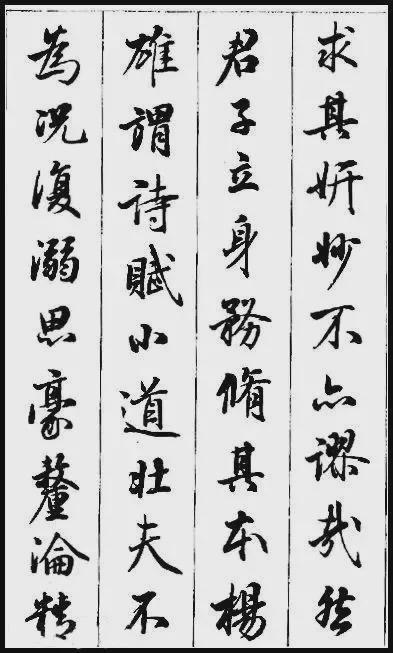 求其妍妙不亦謬哉然
君子立身務脩其本楊
雄謂詩賦小道壯夫不
為況復溺思豪釐淪精